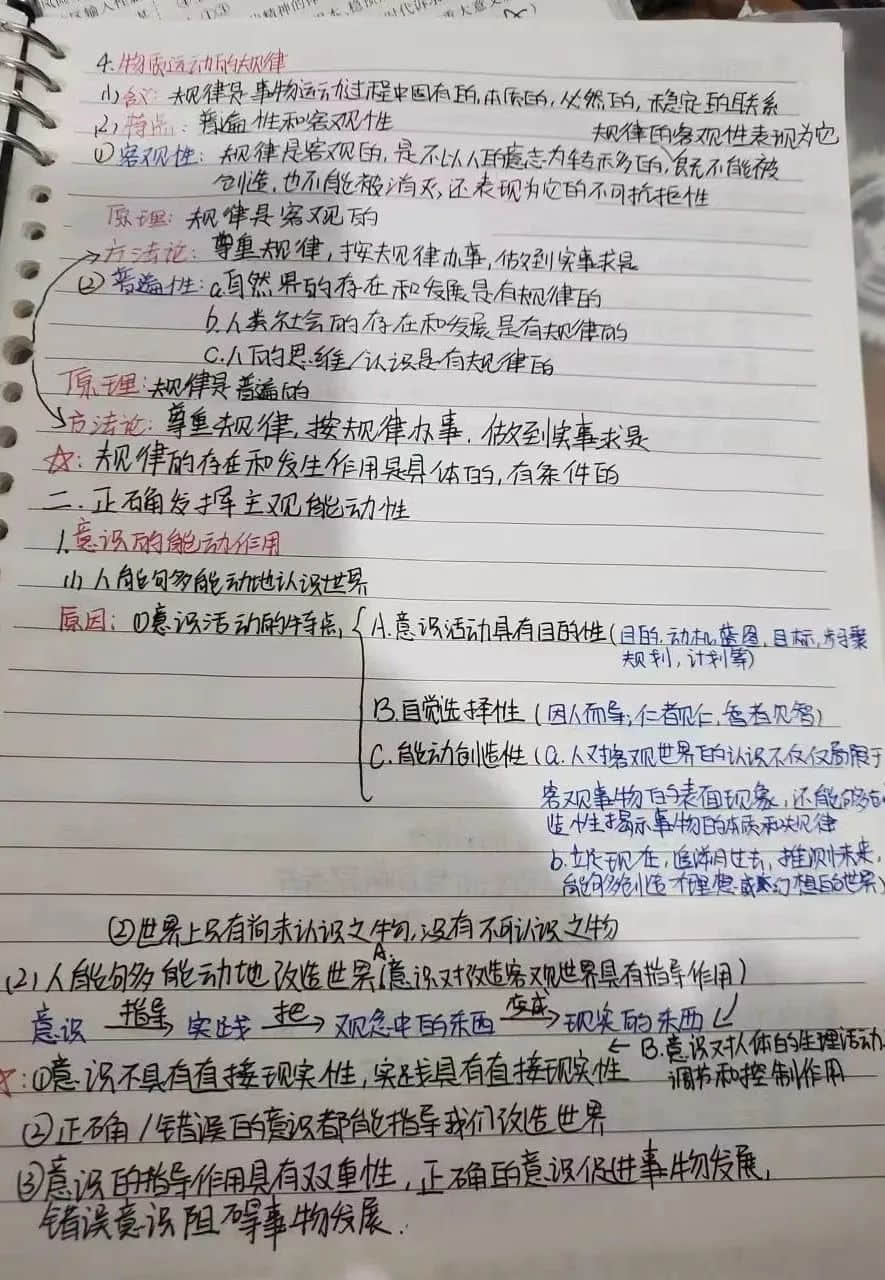 4.物质运动的规律
(1)含义:规律是事物运动过程中固有的,本质的,必然的,稳定的联系
(2)特点:普遍性和客观性
规律的客观性表现为它
①客观性:规律是客观的,是不以人的意志为转移的,既不能被
创造,也不能被消灭,还表现为它的不可抗拒性
原理:规律是客观的
方法论:尊重规律,按规律办事,做到实事求是
②普遍性:a.自然界的存在和发展是有规律的
b.人类社会的存在和发展是有规律的
c.人的思维/认识是有规律的
原理:规律是普遍的
方法论:尊重规律,按规律办事,做到实事求是
☆:规律的存在和发生作用是具体的,有条件的
二.正确发挥主观能动性
1.意识的能动作用
(1)人能够能动地认识世界
原因:①意识活动的特点,{A.意识活动具有目的性(目的,动机,蓝图,目标,
规划,计划等)
B.自觉选择性(因人而异;仁者见仁,智者见智)
C.能动创造性(a.人对客观世界的认识不仅仅局限于
客观事物的表面现象,还能够创
造性揭示事物的本质和规律
b.立足现在,追溯过去,推测未来,
能够创造有理想或幻想的世界)
②世界上只有尚未认识之物,没有不可认识之物
(2)人能够能动地改造世界(A.意识对改造客观世界具有指导作用)
意识 指导→ 实践 把→ 观念中的东西 变成→ 现实的东西 ↙
← B.意识对人体的生理活动
调节和控制作用
☆:①意识不具有直接现实性,实践具有直接现实性
②正确/错误的意识都能指导我们改造世界
③意识的指导作用具有双重性,正确的意识促进事物发展,
错误意识阻碍事物发展.